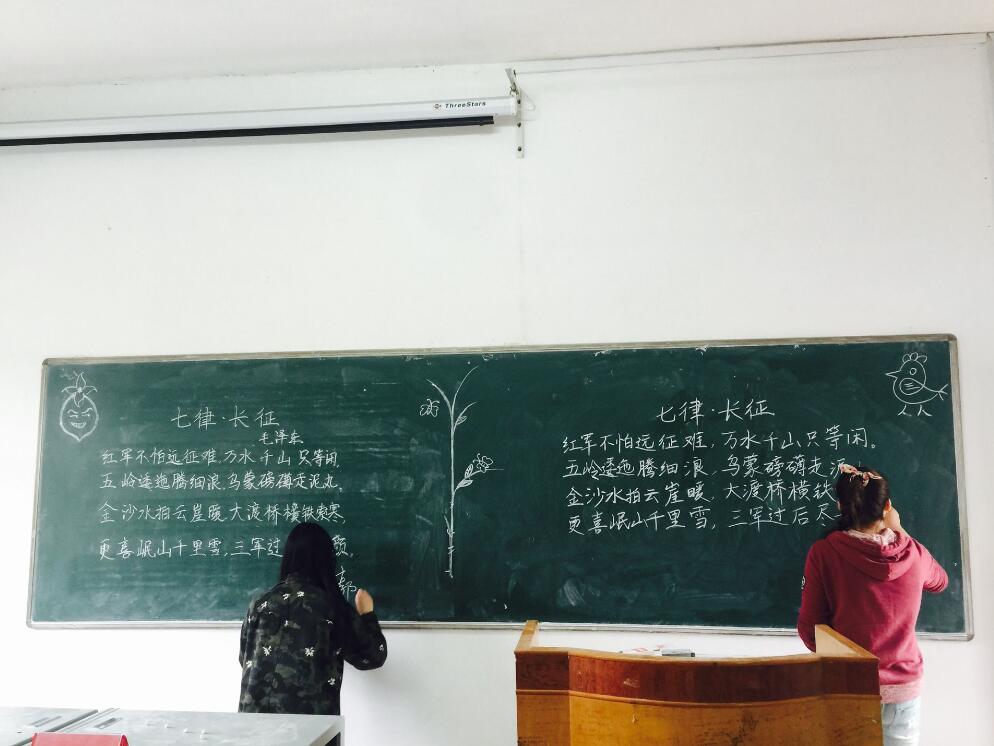 ThreeStars
七律·长征
毛泽东
红军不怕远征难，万水千山只等闲，
五岭逶迤腾细浪，乌蒙磅礴走泥丸，
金沙水拍云崖暖，大渡桥横铁索寒，
更喜岷山千里雪，三军过 颜。
七律·长征
红军不怕远征难，万水千山只等闲。
五岭逶迤腾细浪，乌蒙磅礴走泥
金沙水拍云崖暖，大渡桥横铁
更喜岷山千里雪，三军过后尽